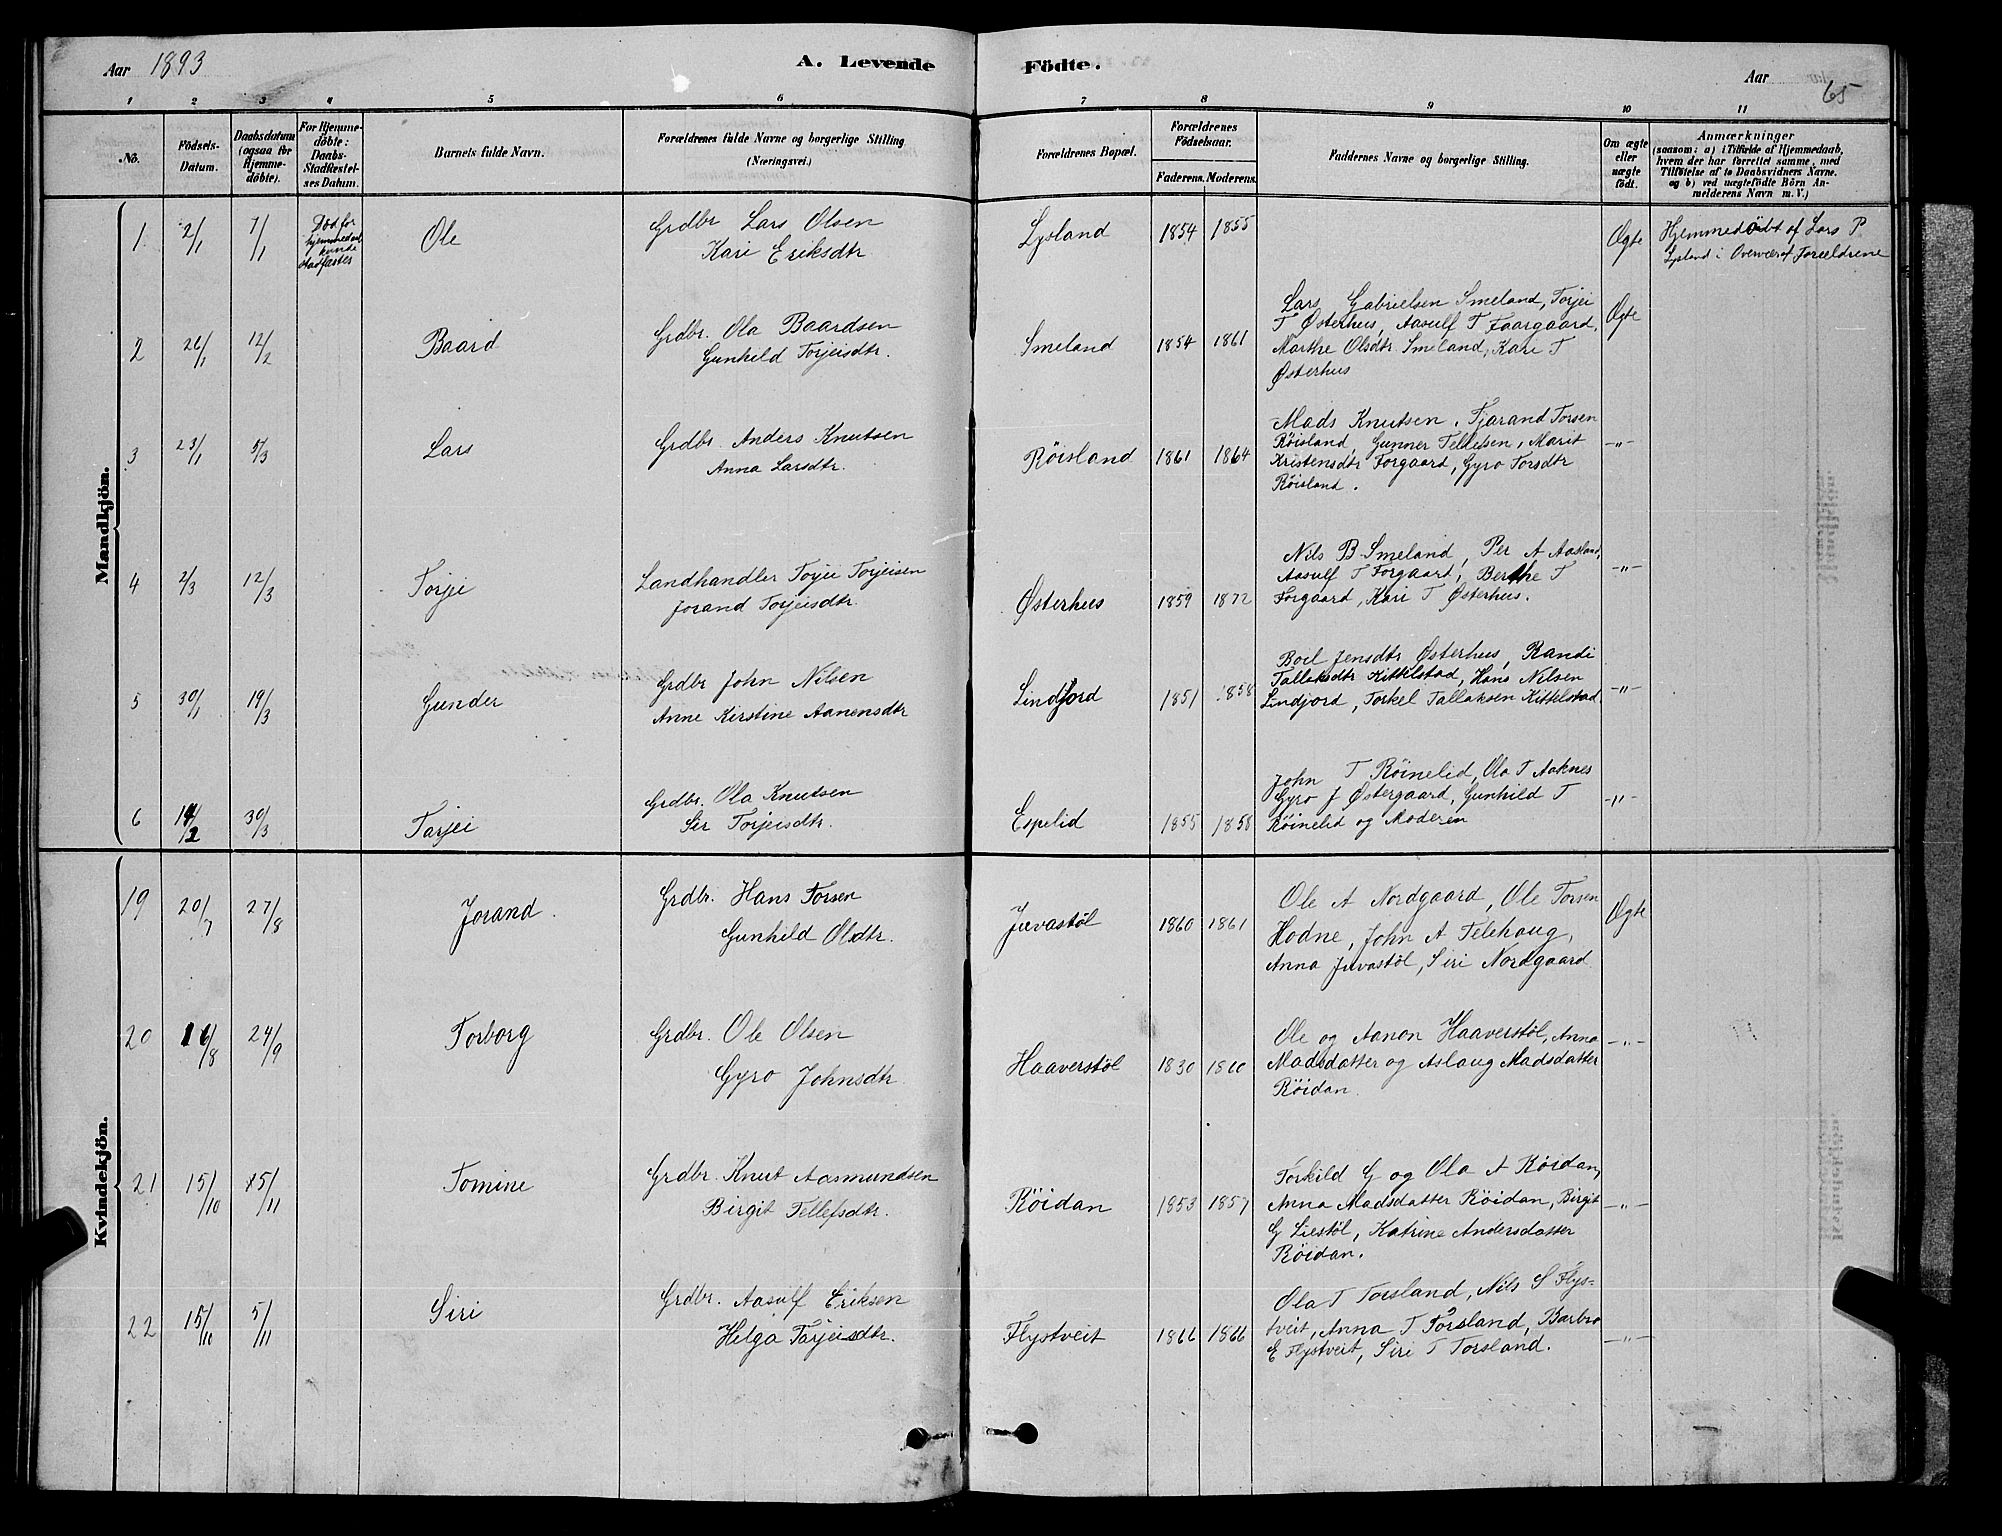 Aar 1893
A. Levende Födte.
Aar
65
1 2 3 4 5 6 7 8 9 10 11
No.
Födsels-
Datum.
Daabsdatum
(ogsaa for
Hjemme-
döbte).
For Hjemme-
döbte:
Daabs-
Stadfæstel-
ses Datum.
Barnets fulde Navn.
Forældrenes fulde Navne og borgerlige Stilling
(Næringsvei.)
Forældrenes Bopæl.
Forældrenes
Födselsaar.
Faderens. Moderens.
Faddernes Navne og borgerlige Stilling.
Om ægte
eller
uægte
födt.
Anmærkninger
(saasom: a) i Tilfælde af Hjemmedaab,
hvem der har forrettet samme, med
Tilföielse af to Daabsvidners Navne.
og b) ved uægtefödte Börn An-
melderens Navn m. V.)
Mandkjön.
1 2/1 7/1
Död for
hjemmedaab
kunde
stadfæstes
Ole
Grdbr Lars Olsen
Kari Eriksdtr
Lysland 1854 1855 Ægte
Hjemmedöbt af Lars P
Lysland i Overvær af Forældrene
2 26/1 12/2 Baard
Grdbr. Ola Baardsen
Gunhild Torjeisdtr.
Smeland 1854 1861
Lars Gabrielsen Smeland, Torjei
T Østerhus, Aasulf T Faargaard,
Marthe Olsdtr Smeland, Kari T
Østerhus
Ægte
3 23/1 5/3 Lars
Grdbr. Anders Knutsen
Anna Larsdtr.
Röisland 1861 1864
Mads Knutsen, Tjarand Torsen
Röisland, Gunner Tellefsen, Marit
Kristensdtr Forgaard, Gyro Torsdtr
Röisland.
-"-
4 2/3 12/3 Torjei
Landhandler Torjei Torjeisen
Jorand Torjeisdtr.
Østerhus 1859 1872
Nils B Smeland, Per A Aasland,
Aasulf T Forgaard, Berthe T
Forgaard, Kari T Østerhus.
-"-
5 30/1 19/3 Gunder
Grdbr John Nilsen
Anne Kirstine Aanensdtr
Lindjord 1851 1858
Boel Jensdtr Østerhus, Randi
Tallaksdtr Kittelstad, Hans Nilsen
Lindjord, Torkel Tallaksen Kittelstad.
-"-
6 14/2 30/3 Tarjei
Grdbr. Ola Knutsen
Sir Torjeisdtr.
Espelid 1855 1858
John T Röinelid, Ola T Aaknes
Gyro J Østergaard, Gunhild T
Röinelid og Moderen
-"-
Kvindekjön.
19 20/7 27/8 Jorand.
Grdbr. Hans Torsen
Gunhild Olsdtr.
Juvastöl 1860 1861
Ole A Nordgaard, Ole Torsen
Hodne, John A Felehaug,
Anna Juvastöl, Siri Nordgaard
Ægte
20 16/8 24/9 Torborg
Grdbr. Ole Olsen
Gyro Johnsdtr
Haaverstöl 1830 1860
Ole og Aanon Haaverstöl, Anna
Madsdatter og Aslaug Madsdatter
Röidan.
-"-
21 15/10 15/11 Tomine
Grdbr. Knut Aasmundsen
Birgit Tellefsdtr.
Röidan 1853 1857
Torkild G og Ola A Röidan,
Anna Madsdatter Röidan, Birgit
G Liestöl, Katrine Andersdatter
Röidan.
-"-
22 15/10 5/11 Siri
Grdbr. Aasulf Eriksen
Helga Tarjeisdtr.
Flystveit 1866 1866
Ola T Torsland, Nils S Flys-
tveit, Anna T Torsland, Barbro
E Flystveit, Siri T Torsland.
-"-